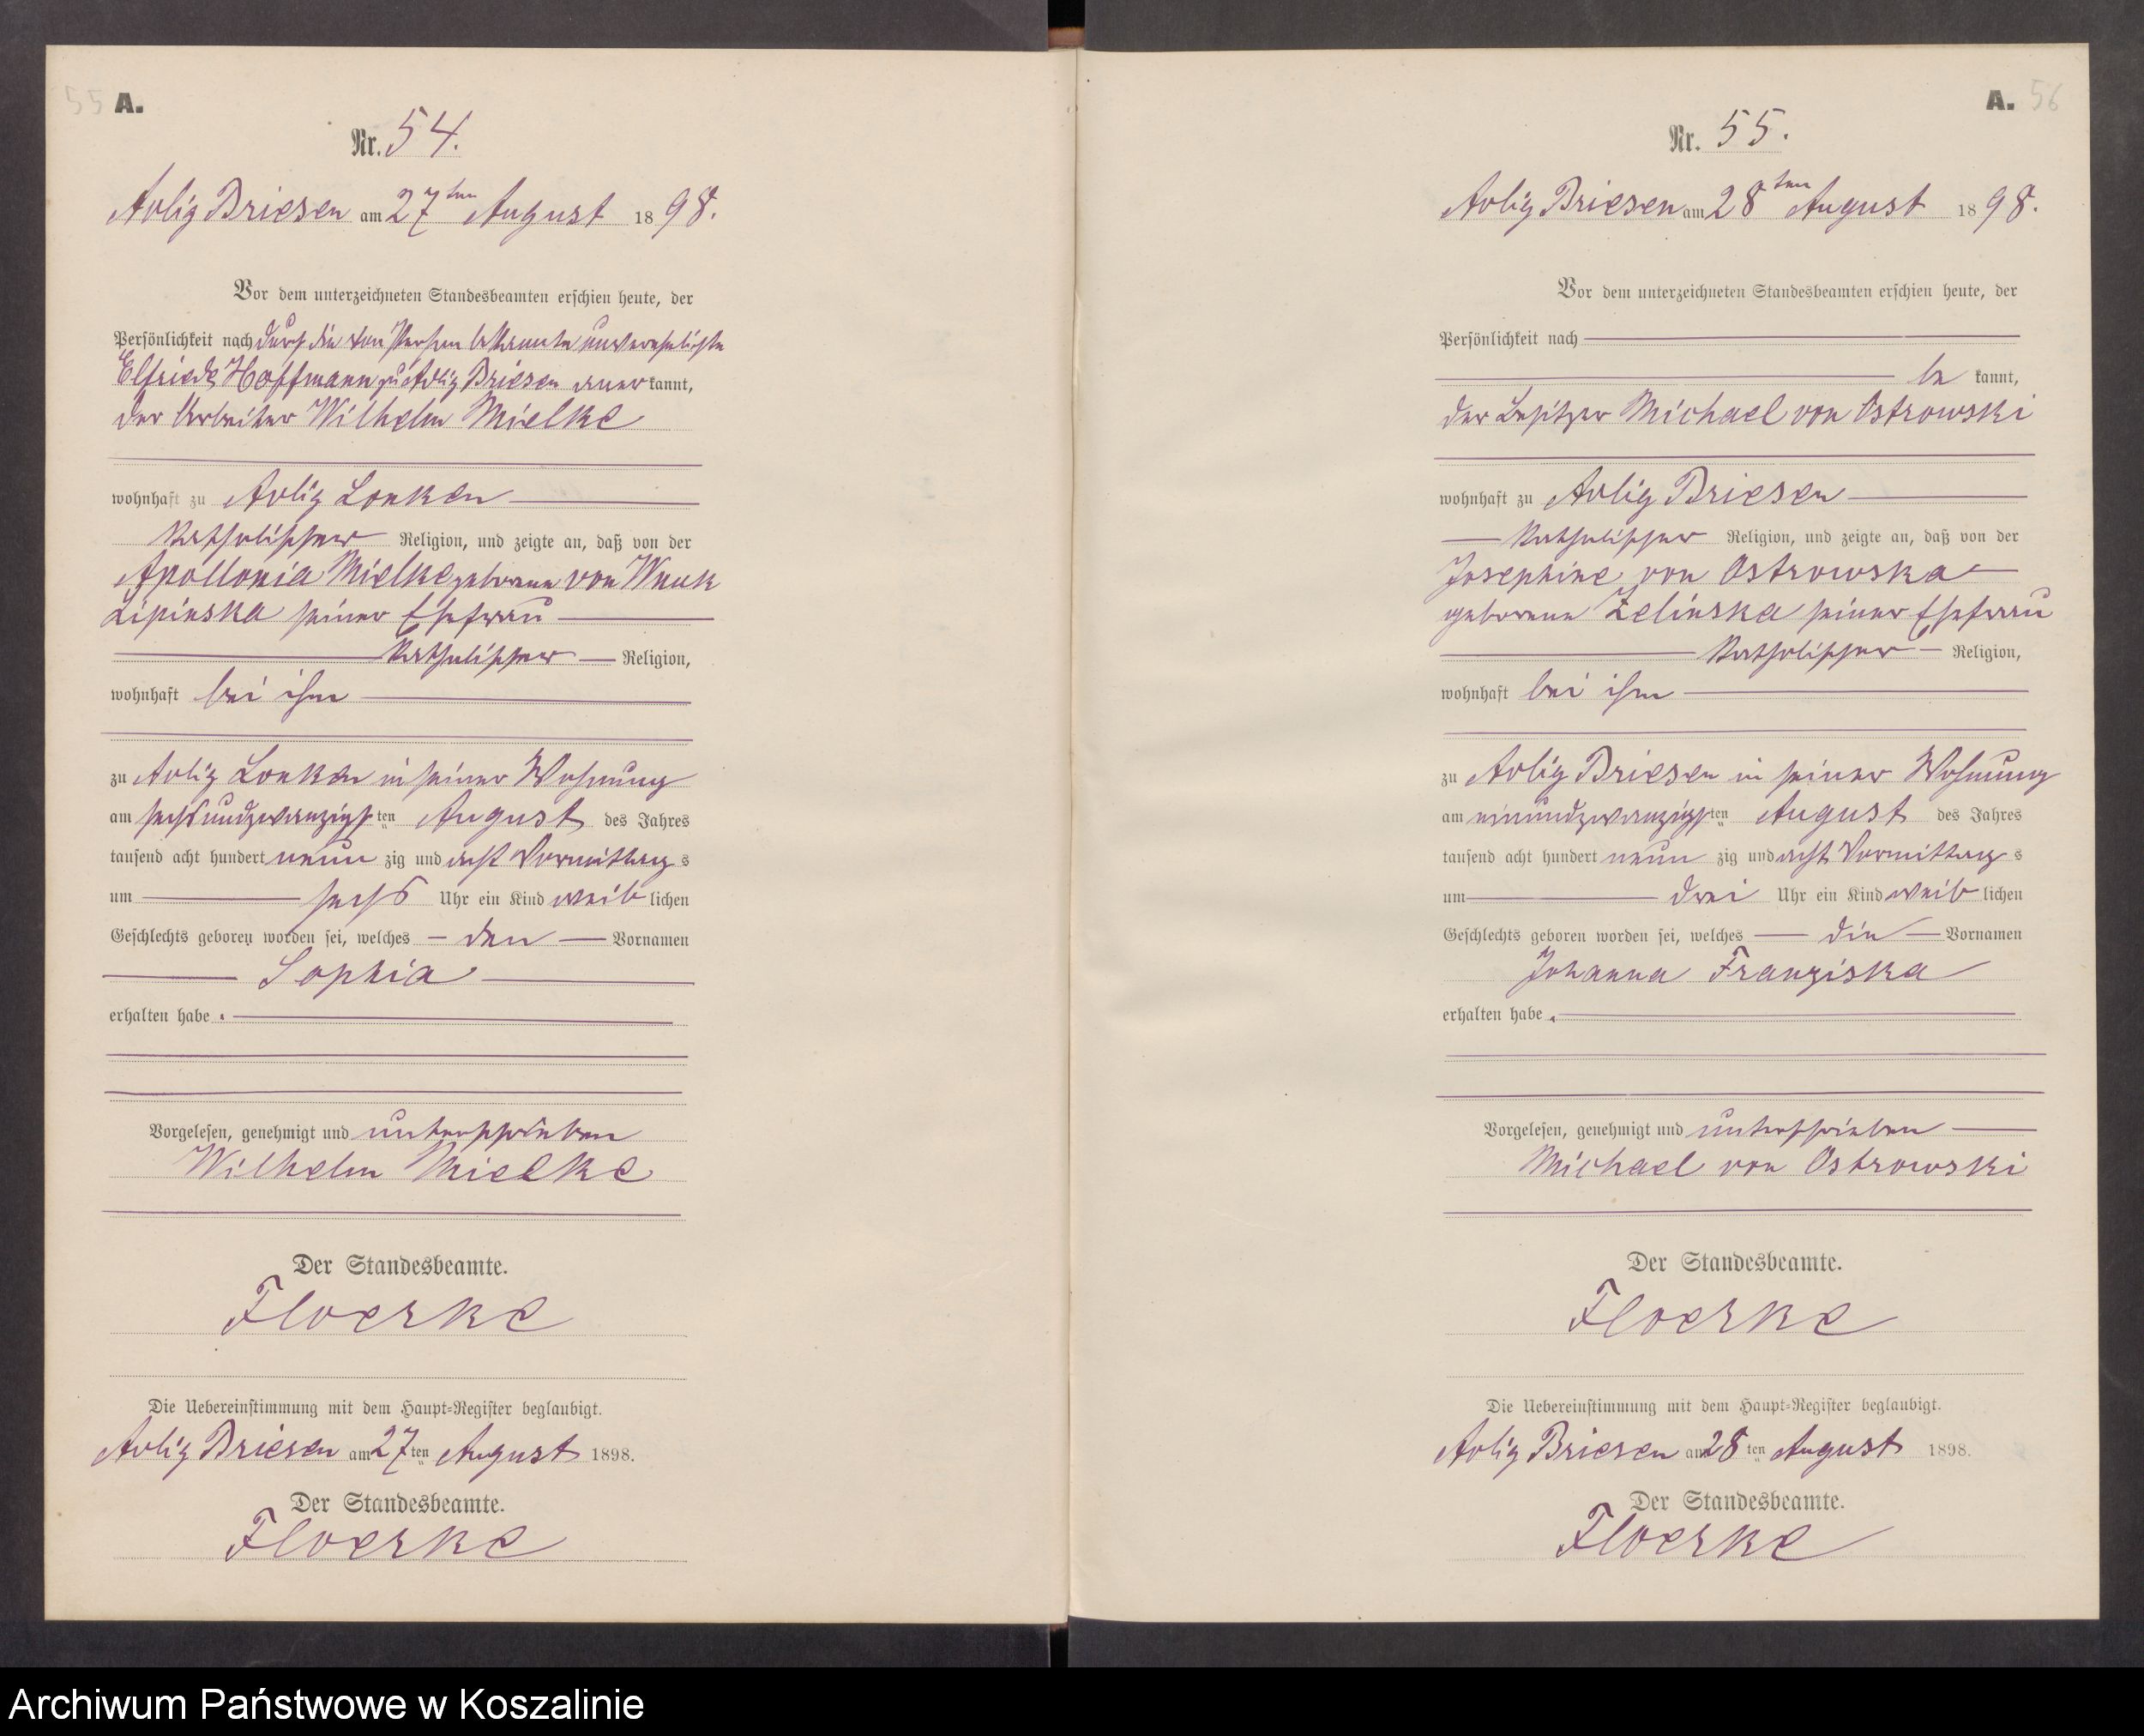 55 A.
Nr. 54.
Adlig Briesen am 27ten August 1898.
Vor dem unterzeichneten Standesbeamten erschien heute, der
Persönlichkeit nach durch die von Person bekannte unverehelichte
Elfriede Hoffmann zu Adlig Briesen anerkannt,
der Arbeiter Wilhelm Mielke
wohnhaft zu Adlig Lonken
katholischer Religion, und zeigte an, daß von der
Apollonia Mielke geborene von Wnuk
Lipinska seiner Ehefrau
katholischer Religion,
wohnhaft bei ihm
zu Adlig Lonken in seiner Wohnung
am sechsundzwanzigsten August des Jahres
tausend acht hundert neunzig und acht Vormittags
um sechs Uhr ein Kind weiblichen
Geschlechts geboren worden sei, welches den Vornamen
Sophia
erhalten habe.
Vorgelesen, genehmigt und unterschrieben
Wilhelm Mielke
Der Standesbeamte.
Floerke
Die Uebereinstimmung mit dem Haupt-Register beglaubigt.
Adlig Briesen am 27ten August 1898.
Der Standesbeamte.
Floerke
A. 56
Nr. 55.
Adlig Briesen am 28ten August 1898.
Vor dem unterzeichneten Standesbeamten erschien heute, der
Persönlichkeit nach
bekannt,
der Besitzer Michael von Ostrowski
wohnhaft zu Adlig Briesen
katholischer Religion, und zeigte an, daß von der
Josephine von Ostrowska
geborene Zelinska seiner Ehefrau
katholischer Religion,
wohnhaft bei ihm
zu Adlig Briesen in seiner Wohnung
am einundzwanzigsten August des Jahres
tausend acht hundert neunzig und acht Vormittags
um drei Uhr ein Kind weiblichen
Geschlechts geboren worden sei, welches die Vornamen
Johanna Franziska
erhalten habe.
Vorgelesen, genehmigt und unterschrieben
Michael von Ostrowski
Der Standesbeamte.
Floerke
Die Uebereinstimmung mit dem Haupt-Register beglaubigt.
Adlig Briesen am 28ten August 1898.
Der Standesbeamte.
Floerke
Archiwum Państwowe w Koszalinie